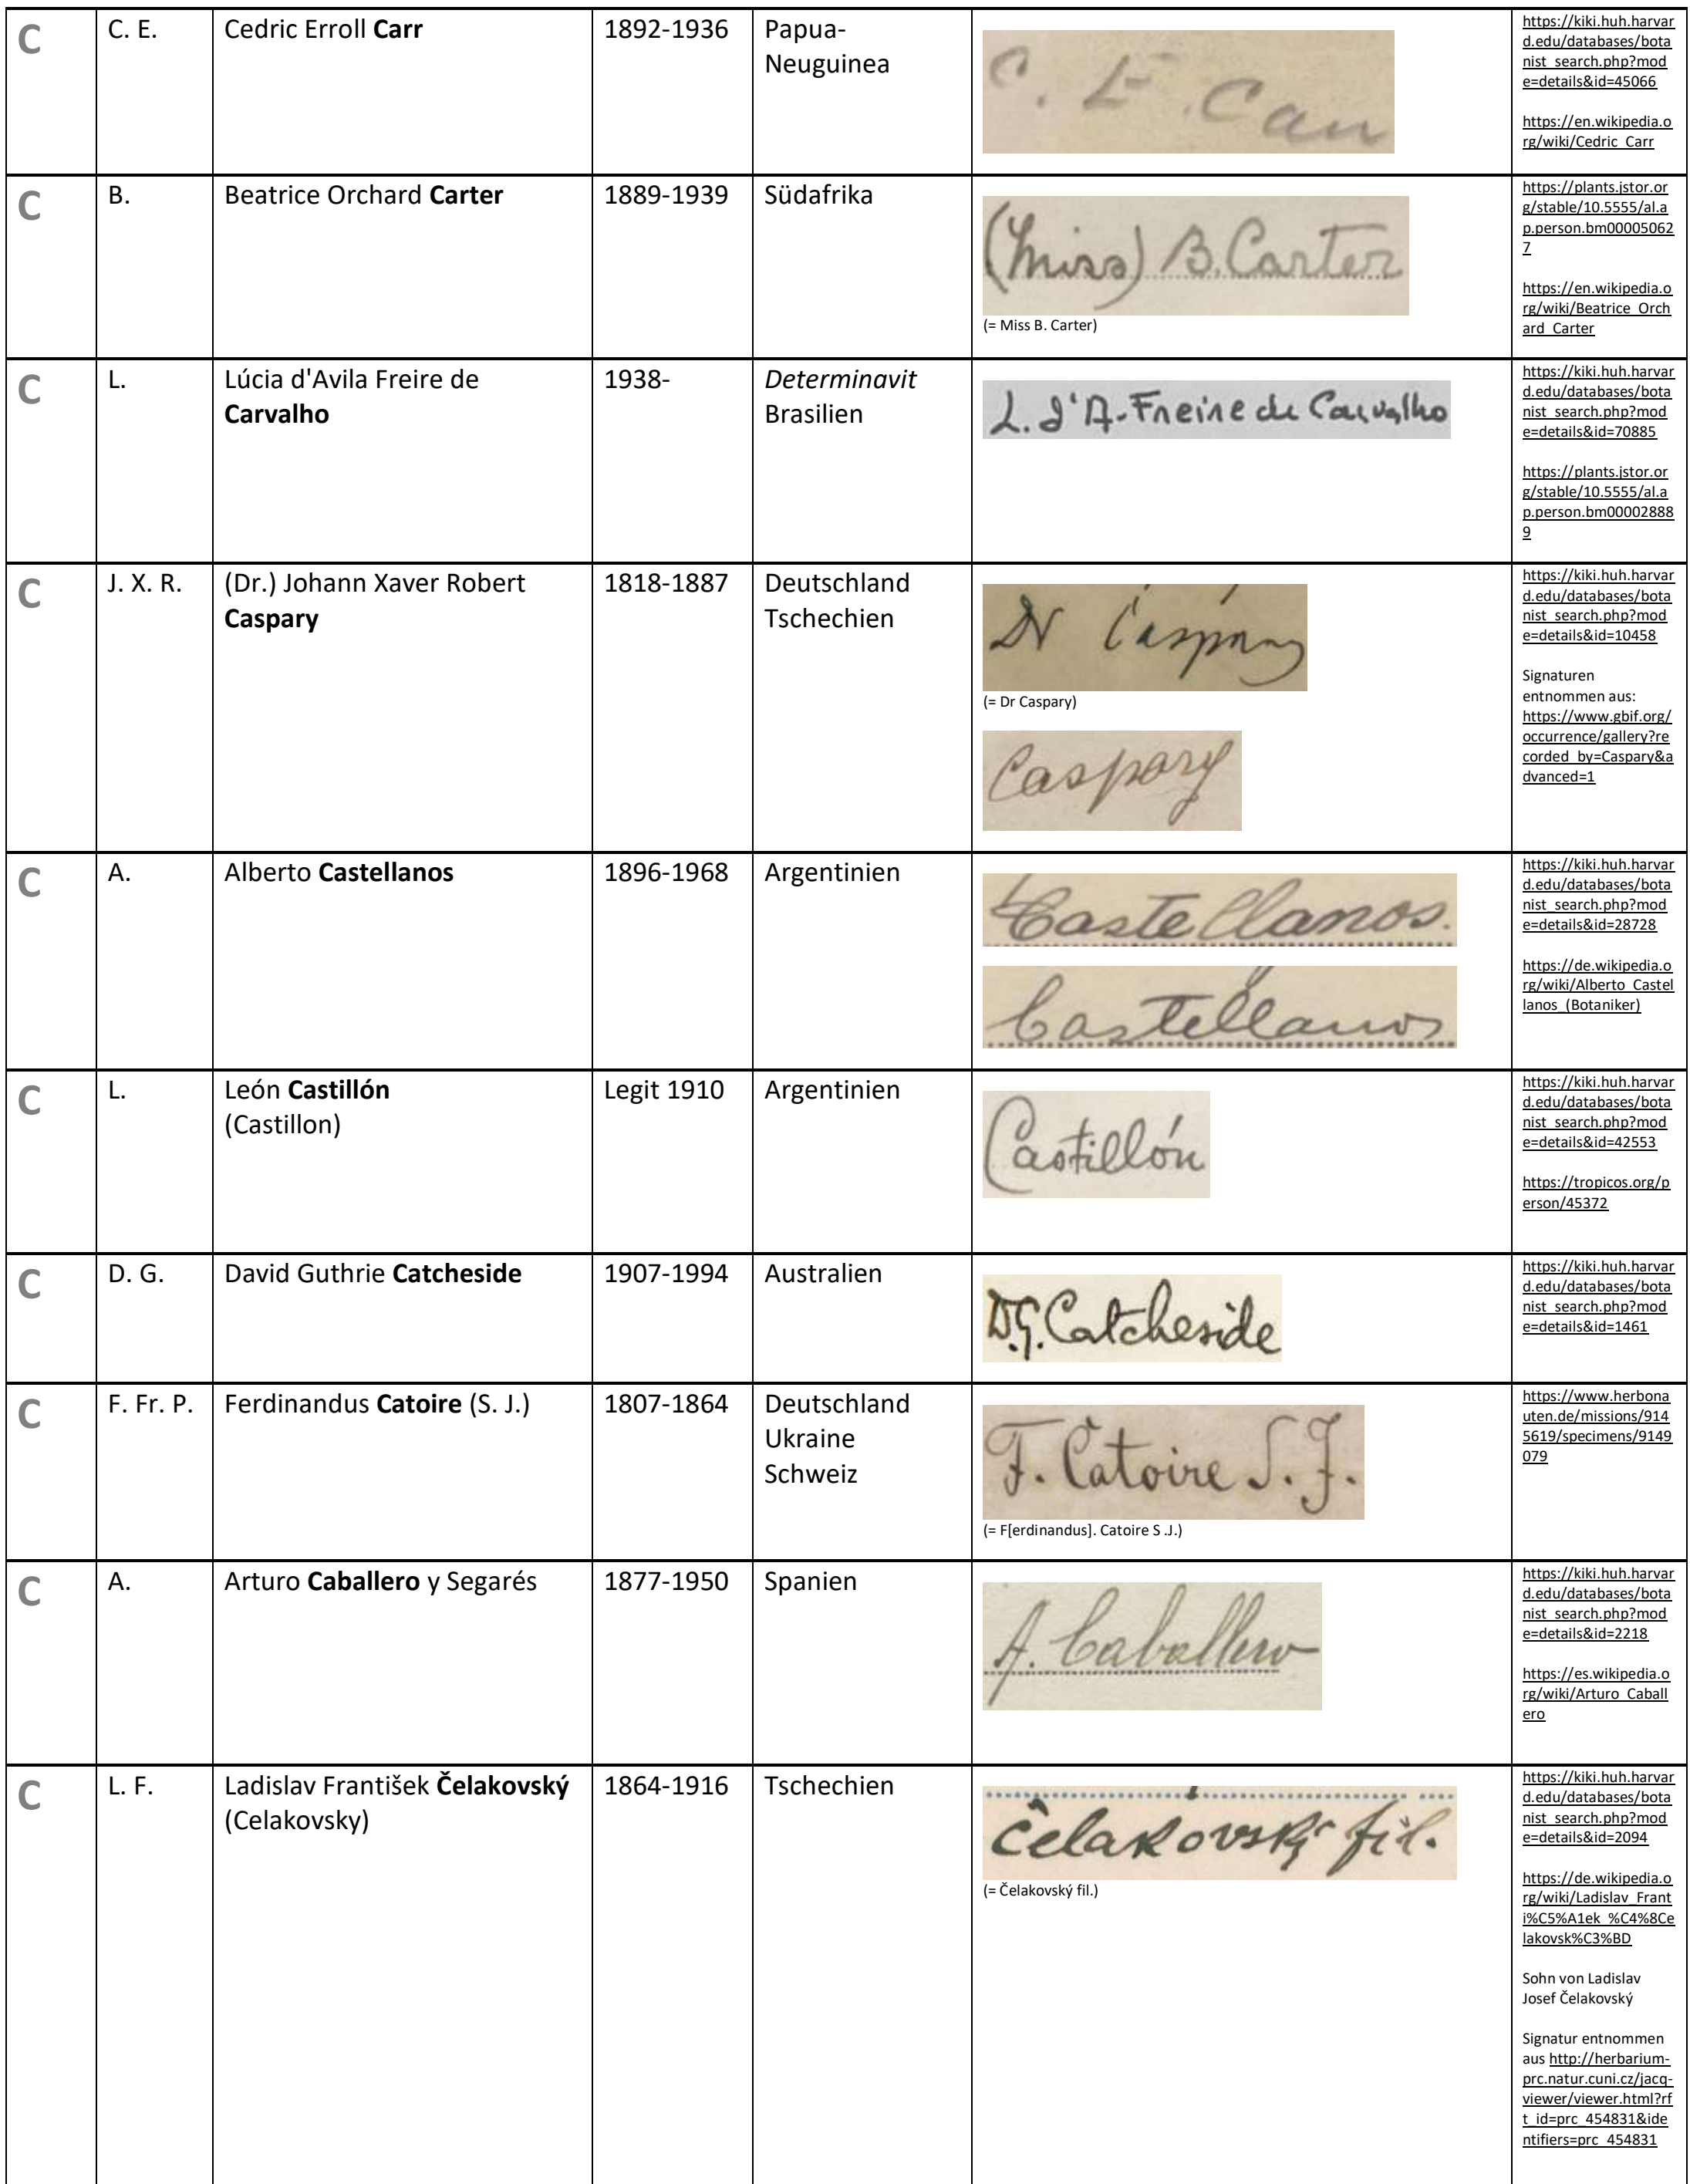 C
C. E.
Cedric Erroll Carr
1892-1936
Papua-
Neuguinea
C. E. Carr
https://kiki.huh.harvar
d.edu/databases/bota
nist_search.php?mod
e=details&id=45066
https://en.wikipedia.o
rg/wiki/Cedric_Carr
C
B.
Beatrice Orchard Carter
1889-1939
Südafrika
(Miss) B. Carter
(= Miss B. Carter)
https://plants.jstor.or
g/stable/10.5555/al.a
p.person.bm00005062
7
https://en.wikipedia.o
rg/wiki/Beatrice_Orch
ard_Carter
C
L.
Lúcia d'Avila Freire de
Carvalho
1938-
Determinavit
Brasilien
L. d'A. Freire de Carvalho
https://kiki.huh.harvar
d.edu/databases/bota
nist_search.php?mod
e=details&id=70885
https://plants.jstor.or
g/stable/10.5555/al.a
p.person.bm00002888
9
C
J. X. R.
(Dr.) Johann Xaver Robert
Caspary
1818-1887
Deutschland
Tschechien
Dr Caspary
(= Dr Caspary)
Caspary
https://kiki.huh.harvar
d.edu/databases/bota
nist_search.php?mod
e=details&id=10458
Signaturen
entnommen aus:
https://www.gbif.org/
occurrence/gallery?re
corded_by=Caspary&a
dvanced=1
C
A.
Alberto Castellanos
1896-1968
Argentinien
Castellanos.
Castellanos
https://kiki.huh.harvar
d.edu/databases/bota
nist_search.php?mod
e=details&id=28728
https://de.wikipedia.o
rg/wiki/Alberto_Castel
lanos_(Botaniker)
C
L.
León Castillón
(Castillon)
Legit 1910
Argentinien
Castillón
https://kiki.huh.harvar
d.edu/databases/bota
nist_search.php?mod
e=details&id=42553
https://tropicos.org/p
erson/45372
C
D. G.
David Guthrie Catcheside
1907-1994
Australien
D.G. Catcheside
https://kiki.huh.harvar
d.edu/databases/bota
nist_search.php?mod
e=details&id=1461
C
F. Fr. P.
Ferdinandus Catoire (S. J.)
1807-1864
Deutschland
Ukraine
Schweiz
F. Catoire S. J.
(= F[erdinandus]. Catoire S .J.)
https://www.herbona
uten.de/missions/914
5619/specimens/9149
079
C
A.
Arturo Caballero y Segarés
1877-1950
Spanien
A. Caballero
https://kiki.huh.harvar
d.edu/databases/bota
nist_search.php?mod
e=details&id=2218
https://es.wikipedia.o
rg/wiki/Arturo_Caball
ero
C
L. F.
Ladislav František Čelakovský
(Celakovsky)
1864-1916
Tschechien
Čelakovský fil.
(= Čelakovský fil.)
https://kiki.huh.harvar
d.edu/databases/bota
nist_search.php?mod
e=details&id=2094
https://de.wikipedia.o
rg/wiki/Ladislav_Frant
i%C5%A1ek_%C4%8Ce
lakovsk%C3%BD
Sohn von Ladislav
Josef Čelakovský
Signatur entnommen
aus http://herbarium-
prc.natur.cuni.cz/jacq-
viewer/viewer.html?rf
t_id=prc_454831&ide
ntifiers=prc_454831